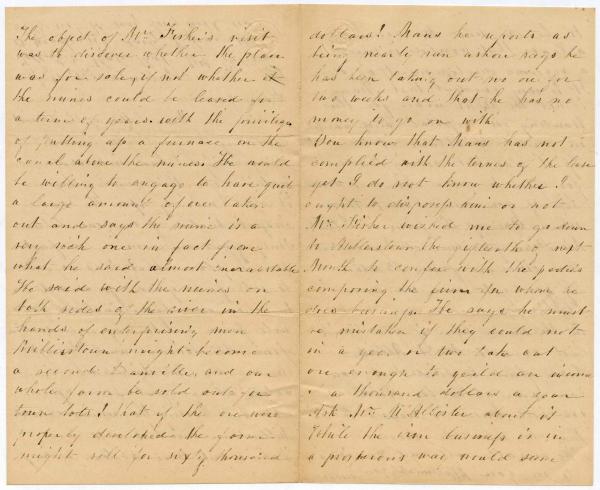 The object of Mr Fisher's visit
was to discover whether the place
was for sale, if not whether it
the mines could be leased for
a term of years with the privilege
of putting up a furnace on the
canal above the mines. He would
be willing to engage to have quit
a large amount of ore taken
out and says the mine is a
very rich one in fact from
what he said almost inexaustable
He said with the mines on
both sides of the river in the
hands of enterprising men
might become
a second Danville and our
whole farm be sold out for
town lots! That if the ore were
properly developed the farm
might sell for sixty thousand
dollars! Maus he reports as
being nearly run ashore says he
has been taking out no ore for
two weeks and that he has no
money to go on with
You know that Maus has not
complied with the terms of the lease
yet I do not know whether I
ought to dispossess him or not
Mr Fisher wished me to go down
to the fifteenth of next
Month to confer with the parties
composing the firm for whom he
does business. He says he must
be mistaken if they could not
in a year or two take out
ore enough to yeild an income
of a thousand dollars a year
Ask Mr McAllister about it
While the iron business is in
a prosperous way would seem